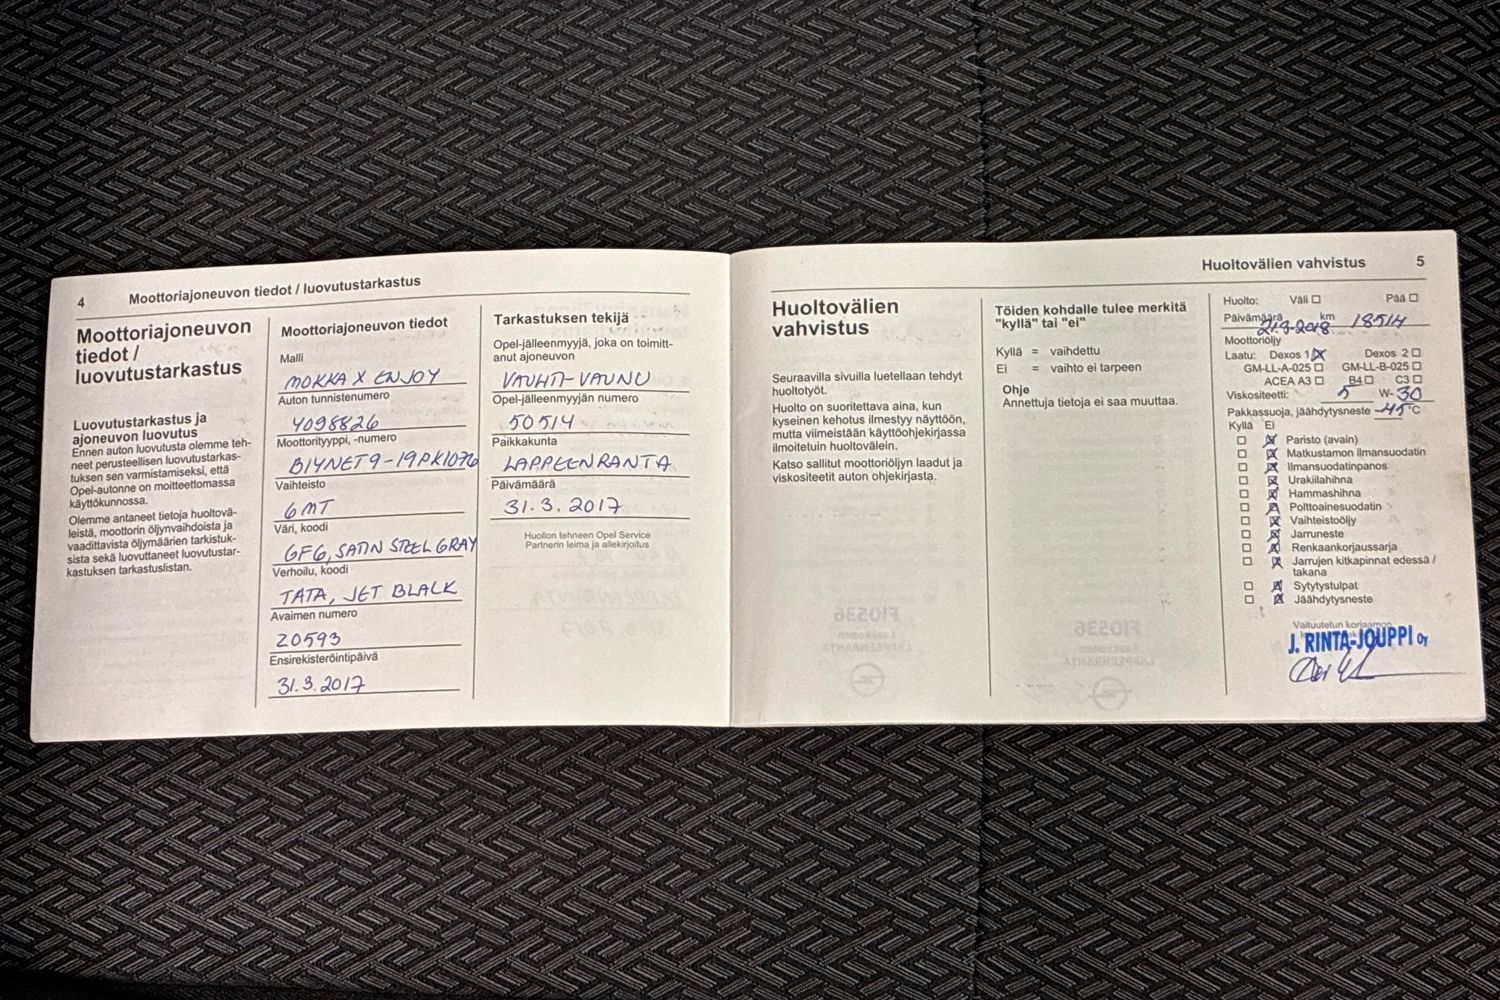 4
Moottoriajoneuvon tiedot / luovutustarkastus
Moottoriajoneuvon
tiedot /
luovutustarkastus
Luovutustarkastus ja
ajoneuvon luovutus
Ennen auton luovutusta olemme teh-
neet perusteellisen luovutustarkas-
tuksen sen varmistamiseksi, että
Opel-autonne on moitteettomassa
käyttökunnossa.
Olemme antaneet tietoja huoltovä-
leistä, moottorin öljynvaihdoista ja
vaadittavista öljymäärien tarkistuk-
sista sekä luovuttaneet luovutustar-
kastuksen tarkastuslistan.
Moottoriajoneuvon tiedot
Malli
MOKKA X ENJOY
Auton tunnistenumero
4098826
Moottorityyppi, -numero
B14NET9-19PK1076
Vaihteisto
6MT
Väri, koodi
GFG, SATIN STEEL GRAY
Verhoilu, koodi
TATA, JET BLACK
Avaimen numero
Z0593
Ensirekisteröintipäivä
31.3.2017
Tarkastuksen tekijä
Opel-jälleenmyyjä, joka on toimitt-
anut ajoneuvon
VAUHTI-VAUNU
Opel-jälleenmyyjän numero
50514
Paikkakunta
LAPPEENRANTA
Päivämäärä
31.3.2017
Huollon tehneen Opel Service
Partnerin leima ja allekirjoitus
Huoltovälien vahvistus
5
Huoltovälien
vahvistus
Seuraavilla sivuilla luetellaan tehdyt
huoltotyöt.
Huolto on suoritettava aina, kun
kyseinen kehotus ilmestyy näyttöön,
mutta viimeistään käyttöohjekirjassa
ilmoitetuin huoltovälein.
Katso sallitut moottoriöljyn laadut ja
viskositeetit auton ohjekirjasta.
Töiden kohdalle tulee merkitä
"kyllä" tai "ei"
Kyllä = vaihdettu
Ei = vaihto ei tarpeen
Ohje
Annettuja tietoja ei saa muuttaa.
Huolto: Väli Pää
Päivämäärä km
21.3-2018 18514
Moottoriöljy
Laatu: Dexos 1 Dexos 2
GM-LL-A-025 GM-LL-B-025
ACEA A3 B4 C3
Viskositeetti: 5 W- 30
Pakkassuoja, jäähdytysneste -45 °C
Kyllä Ei
Paristo (avain)
Matkustamon ilmansuodatin
Ilmansuodatinpanos
Urakiilahihna
Hammashihna
Polttoainesuodatin
Vaihteistoöljy
Jarruneste
Renkaankorjaussarja
Jarrujen kitkapinnat edessä /
takana
Sytytystulpat
Jäähdytysneste
Valtuutetun korjaamon
J. RINTA-JOUPPI OY